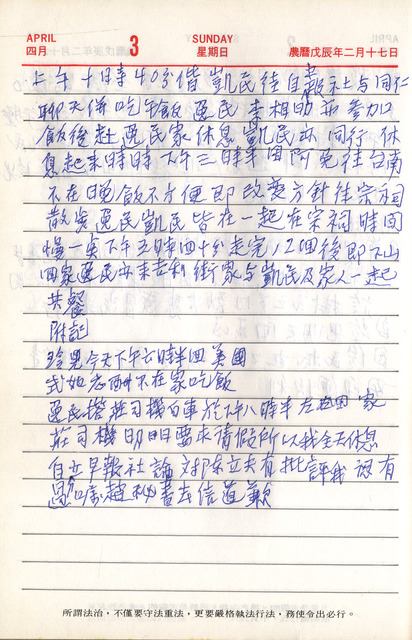 APRIL
四月
3
SUNDAY
星期日
農曆戊辰年二月十七日
上午十時40分偕凱民往自報社與同仁
聊天併吃午飯惠民來相助並參加
飯後赴惠民家休息凱民亦同行休
息起來時時下午三時半回阿兔往台南
不在晚飯不方便即改變方針往宗祠
散步惠民凱民皆在一起在宗祠時間
慢一更下午五時四十分走完12個後即下山
回家惠民亦來吉利街家與凱民及家人一起
共餐
附記
玲兒今天下午六時半回美國
式如志洲不在家吃飯
惠民搭莊司機的車於下午八時半左右回家
莊司機明日要求請假所以我全天休息
自立早報社論對陳立夫有批評我認有
過份屬趙秘書去信道歉
所謂法治，不僅要守法重法，更要嚴格執法行法，務使令出必行。